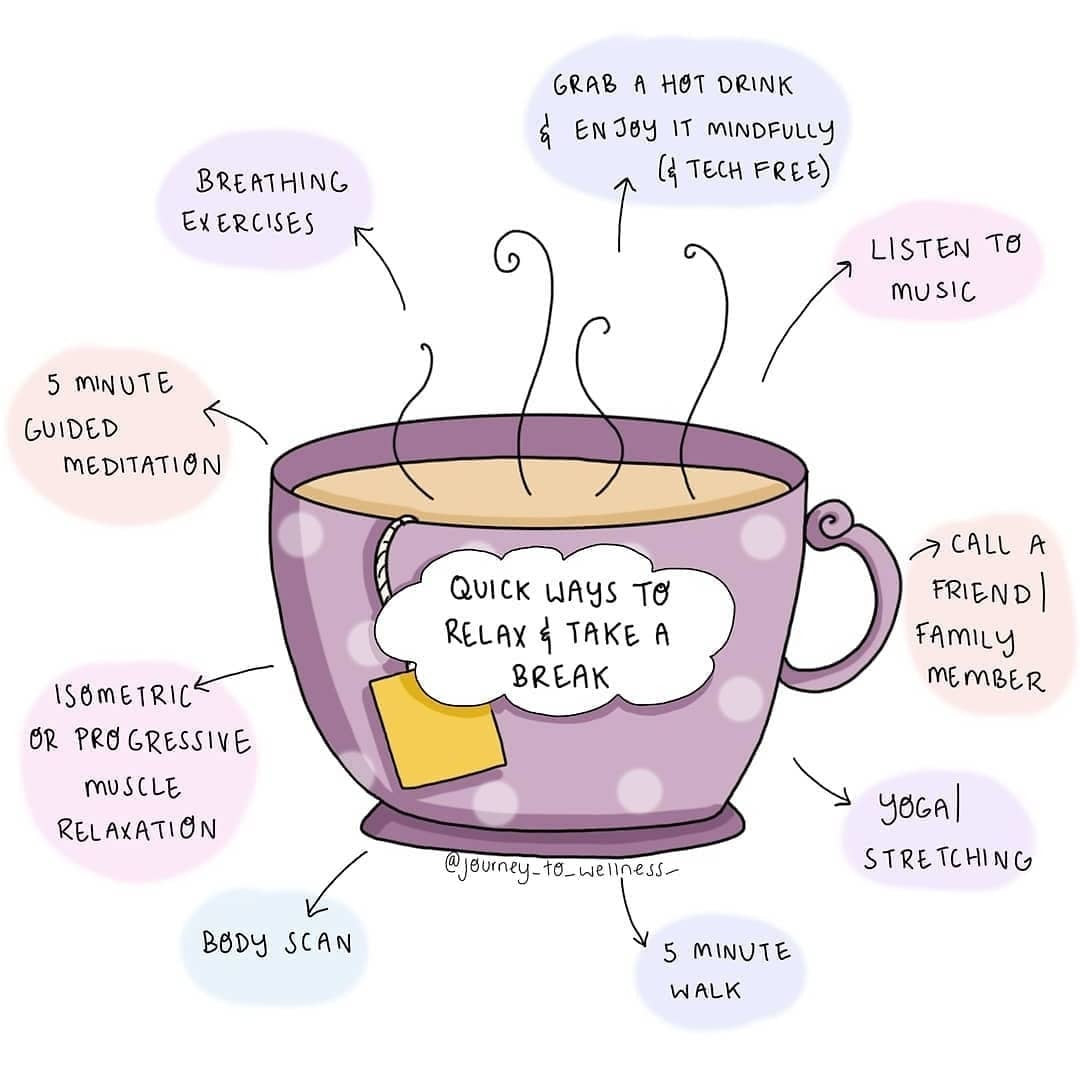 QUICK WAYS TO
RELAX & TAKE A
BREAK
GRAB A HOT DRINK
& ENJOY IT MINDFULLY
(& TECH FREE)
LISTEN TO
MUSIC
CALL A
FRIEND|
FAMILY
MEMBER
YOGA|
STRETCHING
5 MINUTE
WALK
BODY SCAN
ISOMETRIC
OR PROGRESSIVE
MUSCLE
RELAXATION
5 MINUTE
GUIDED
MEDITATION
BREATHING
EXERCISES
@journey_to_wellness_